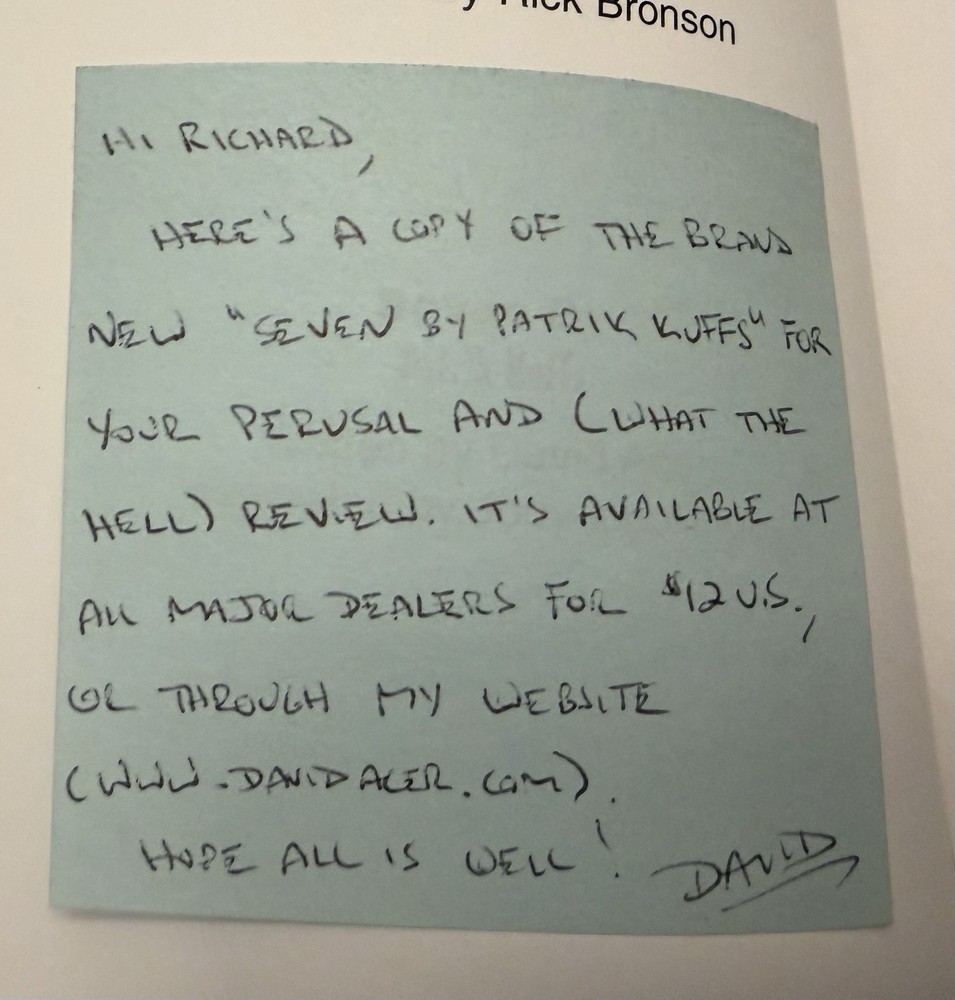 y Rick Bronson
HI RICHARD,
HERE'S A COPY OF THE BRAND
NEW "SEVEN BY PATRIK KUFFS" FOR
YOUR PERUSAL AND (WHAT THE
HELL) REVIEW. IT'S AVAILABLE AT
ALL MAJOR DEALERS FOR $12 U.S.,
OR THROUGH MY WEBSITE
(WWW.DAVIDACER.COM).
HOPE ALL IS WELL! DAVID